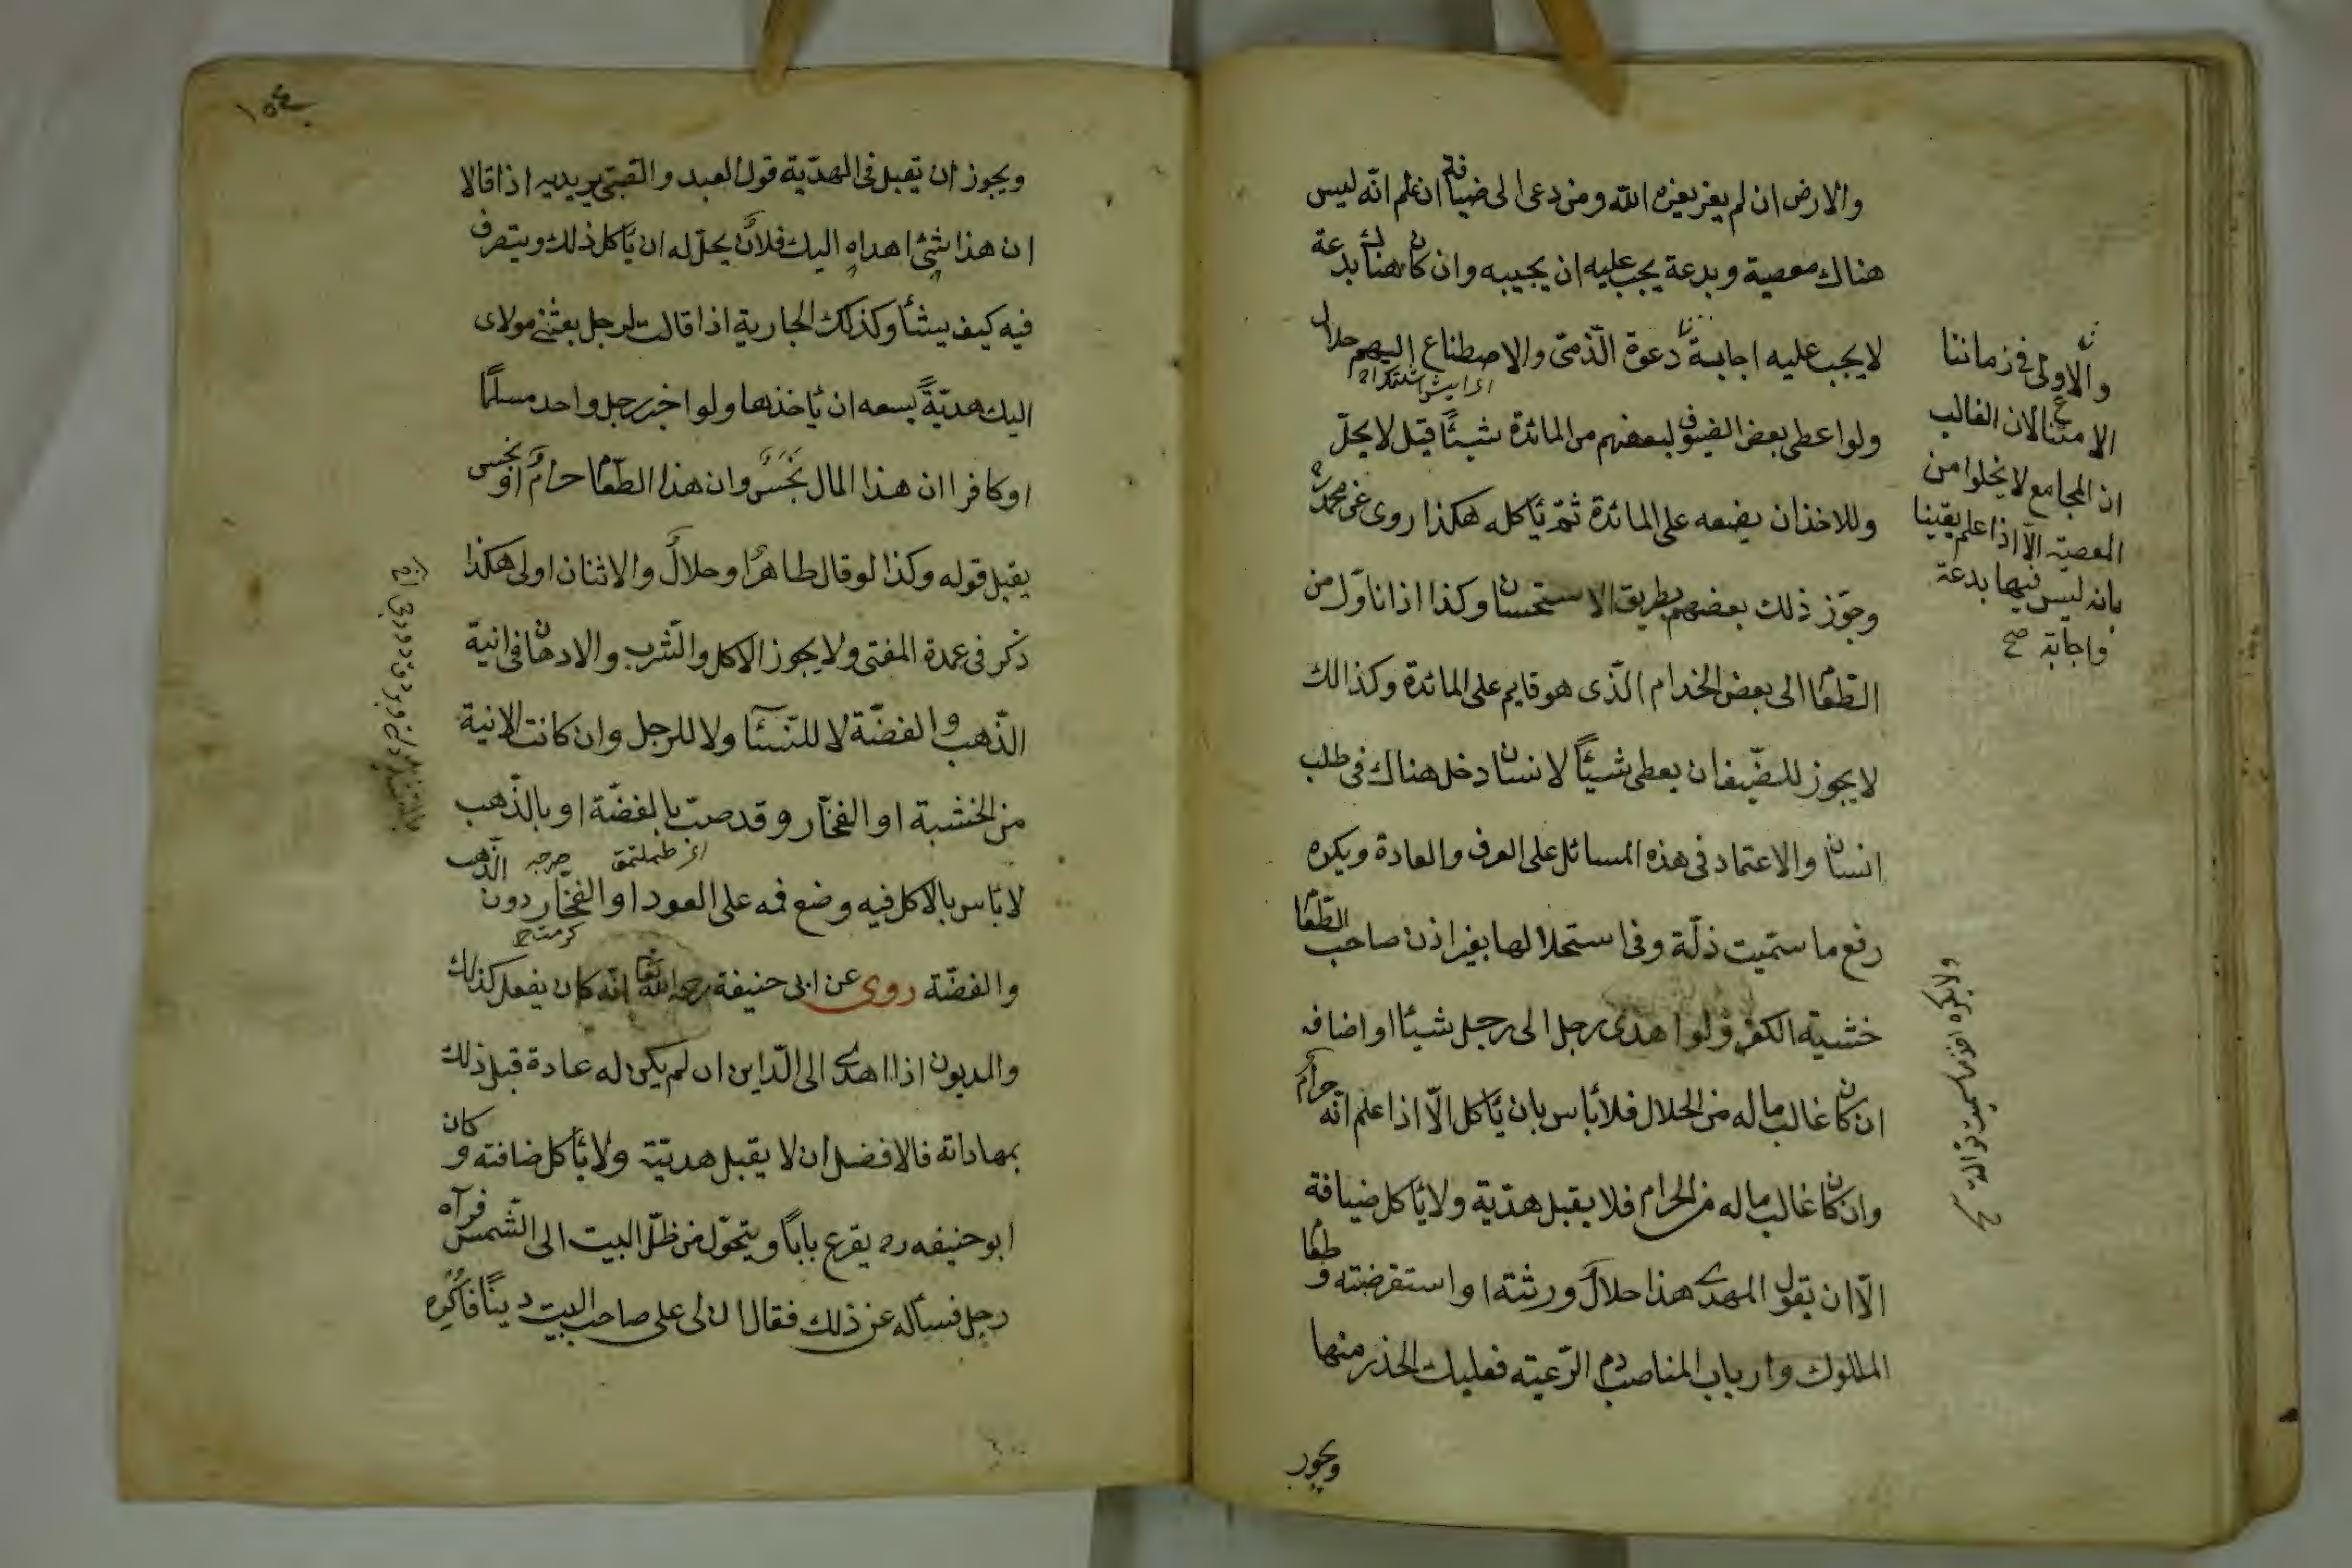 والارض ان لم يغز يغزه الله ومن دعى الى ضيافة ان علم انه ليس
هناك معصية وبدعة يجب عليه ان يجيبه وان كان هناك بدعة
لا يجب عليه اجابة دعوة الذمى والاصطناع اليهم حلال
ولو اعطى بعض الضيوف لبعضهم من المائدة شيئًا قيل لا يحل
وللاخذ ان يضعه على المائدة ثمّ يأكله هكذا روى عن محمد ره
وجوّز ذلك بعضهم بطريق الاستحسان وكذا اذا ناول من
الطّعام الى بعض الخدام الّذى هو قايم على المائدة وكذالك
لا يجوز للضّيف ان يعطى شيئًا لانسان دخل هناك فى طلب
انسان والاعتماد فى هذه المسائل على العرف والعادة ويكره
رفع ما ستميت ذلّة وفى استحلالها بغير اذن صاحب الطّعام
خشية الكفر ولو اهدى رجل الى رجل شيئا او اضافه
ان كان غالب ماله من الحلال فلا بأس بان يأكل الّا اذا علم انّه حرام
وان كان غالب ماله من الحرام فلا يقبل هدّية ولا يأكل ضيافة
الّا ان يقول المهدى هذا حلالٌ ورثته او استقرضته و طعام
الملوك وارباب المناصب دم الرّعيته فعليك الحذر منها
ويجوز
والاولى فى زماننا
الامتناع لان الغالب
ان المجامع لا يخلوا من
المعصية الّا اذا علم يقينا
بانه ليس فيها بدعة
واجابة صح
١٥٤
ويجوز ان يقبل فى الهدّية قول العبد والصّبى يريد به اذا قالا
ان هذا شئ اهداه اليك فلانٌ يحلّ له ان يأكل ذلك ويتصرف
فيه كيف يشأ وكذلك الجارية اذا قالت لرجل بعثنى مولاى
اليك هديّةً يسعه ان يأخذها ولو اخبر رجل واحد مسلمًا
او كافرا ان هذا المال نجسٌ وان هذا الطّعام حرامٌ او نجس
يقبل قوله وكذا لو قال طاهرٌ او حلالٌ والاثنان اولى هكذا
ذكر فى عمدة المفتى ولا يجوز الاكل والشّرب والادهان فى انية
الذّهب والفضّة لا للنّسئا ولا للرجل وان كانت الانية
من الخشبة او الفخّار وقد ضبّب بالفضّة او بالذّهب
لا بأس بالاكل فيه وضع فمه على العود او الفخّار دون الذّهب
والفضّة روى عن ابى حنيفة رحمه الله تعا انّه كان يفعل كذلك
والمديون اذا اهدى الى الدّاين ان لم يكن له عادة قبل ذلك
بمهاداته فالافضل ان لا يقبل هديّته ولا يأكل ضافته و كان
ابو حنيفه ره يقرع بابًا ويتحوّل من ظلّ البيت الى الشّمس فرآه
رجل فسأله عن ذلك فقال ان لى على صاحب البيت دينًا فاكره